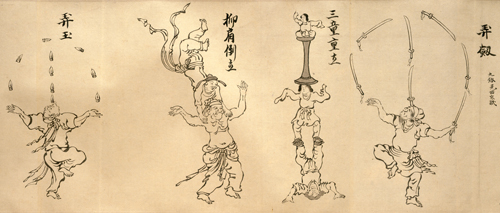 弄劔
三童重立
柳肩倒立
弄玉